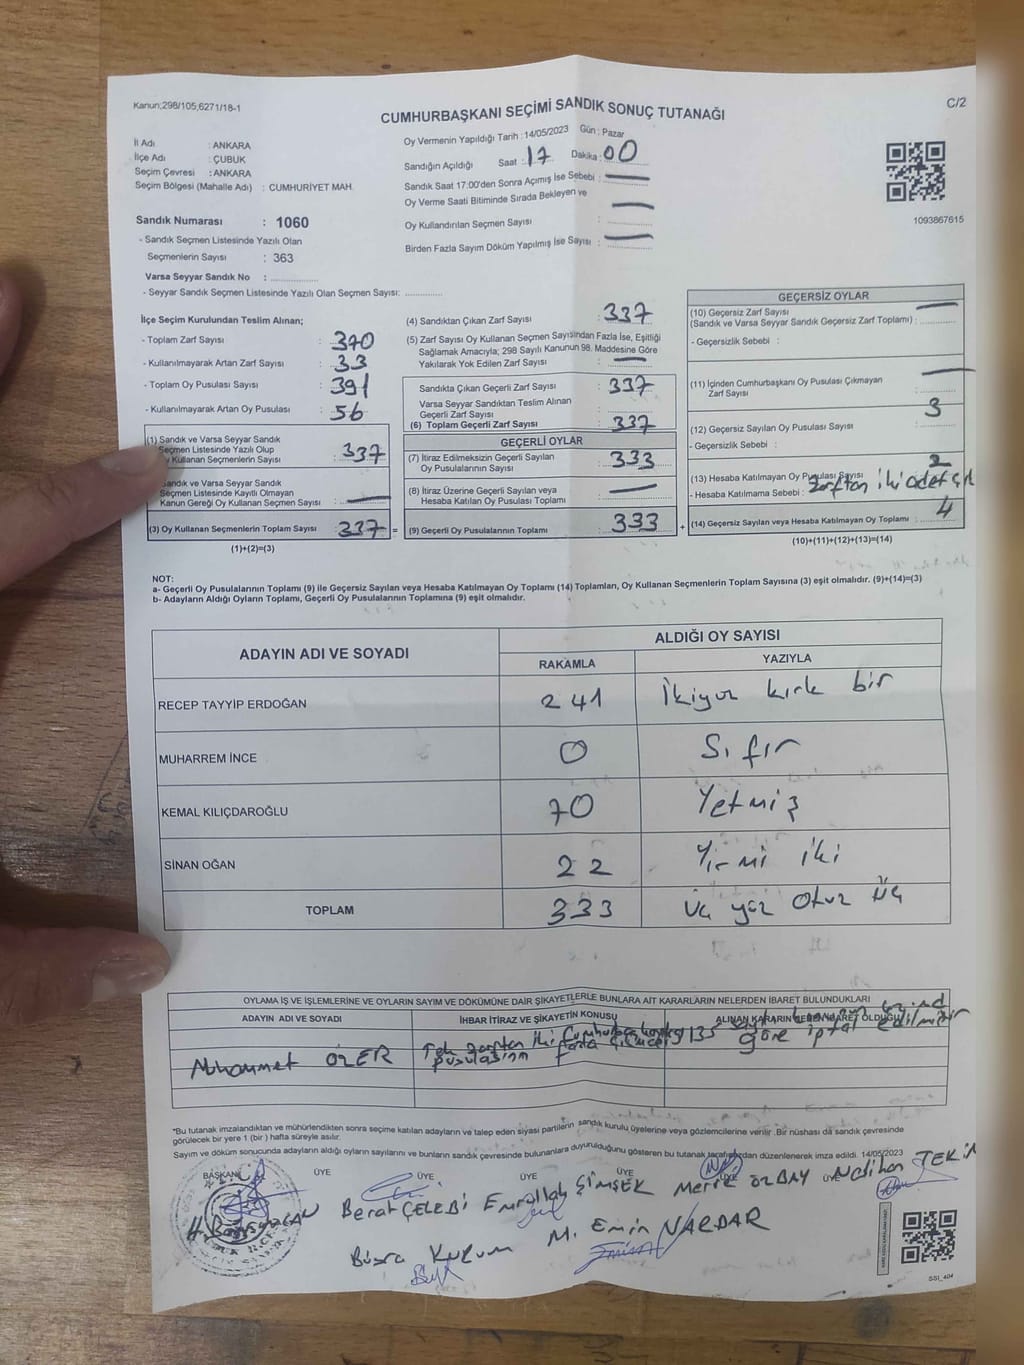 Kanun;298/105;6271/18-1
C/2
CUMHURBAŞKANI SEÇİMİ SANDIK SONUÇ TUTANAĞI
İl Adı : ANKARA
İlçe Adı : ÇUBUK
Seçim Çevresi : ANKARA
Seçim Bölgesi (Mahalle Adı) : CUMHURİYET MAH.
Sandık Numarası : 1060
- Sandık Seçmen Listesinde Yazılı Olan
Seçmenlerin Sayısı : 363
Varsa Seyyar Sandık No :
- Seyyar Sandık Seçmen Listesinde Yazılı Olan Seçmen Sayısı:
Oy Vermenin Yapıldığı Tarih : 14/05/2023 Gün : Pazar
Sandığın Açıldığı Saat : 17 Dakika : 00
Sandık Saat 17:00'den Sonra Açımış İse Sebebi :
Oy Verme Saati Bitiminde Sırada Bekleyen ve
Oy Kullandırılan Seçmen Sayısı :
Birden Fazla Sayım Döküm Yapılmış İse Sayısı :
1093867615
İlçe Seçim Kurulundan Teslim Alınan;
- Toplam Zarf Sayısı : 370
- Kullanılmayarak Artan Zarf Sayısı : 33
- Toplam Oy Pusulası Sayısı : 391
- Kullanılmayarak Artan Oy Pusulası : 56
(1) Sandık ve Varsa Seyyar Sandık
Seçmen Listesinde Yazılı Olup
Oy Kullanan Seçmenlerin Sayısı : 337
Sandık ve Varsa Seyyar Sandık
Seçmen Listesinde Kayıtlı Olmayan
Kanun Gereği Oy Kullanan Seçmen Sayısı :
(3) Oy Kullanan Seçmenlerin Toplam Sayısı : 337 =
(1)+(2)=(3)
(4) Sandıktan Çıkan Zarf Sayısı : 337
(5) Zarf Sayısı Oy Kullanan Seçmen Sayısından Fazla İse, Eşitliği
Sağlamak Amacıyla; 298 Sayılı Kanunun 98. Maddesine Göre
Yakılarak Yok Edilen Zarf Sayısı :
Sandıkta Çıkan Geçerli Zarf Sayısı : 337
Varsa Seyyar Sandıktan Teslim Alınan
Geçerli Zarf Sayısı :
(6) Toplam Geçerli Zarf Sayısı : 337
GEÇERLİ OYLAR
(7) İtiraz Edilmeksizin Geçerli Sayılan
Oy Pusulalarının Sayısı : 333
(8) İtiraz Üzerine Geçerli Sayılan veya
Hesaba Katılan Oy Pusulası Toplamı :
(9) Geçerli Oy Pusulalarının Toplamı : 333 +
GEÇERSİZ OYLAR
(10) Geçersiz Zarf Sayısı
(Sandık ve Varsa Seyyar Sandık Geçersiz Zarf Toplamı) :
- Geçersizlik Sebebi :
(11) İçinden Cumhurbaşkanı Oy Pusulası Çıkmayan
Zarf Sayısı :
(12) Geçersiz Sayılan Oy Pusulası Sayısı : 3
- Geçersizlik Sebebi :
(13) Hesaba Katılmayan Oy Pusulası Sayısı 2
- Hesaba Katılmama Sebebi : zarftan iki adet
(14) Geçersiz Sayılan veya Hesaba Katılmayan Oy Toplamı : 4
(10)+(11)+(12)+(13)=(14)
NOT:
a- Geçerli Oy Pusulalarının Toplamı (9) ile Geçersiz Sayılan veya Hesaba Katılmayan Oy Toplamı (14) Toplamları, Oy Kullanan Seçmenlerin Toplam Sayısına (3) eşit olmalıdır. (9)+(14)=(3)
b- Adayların Aldığı Oyların Toplamı, Geçerli Oy Pusulalarının Toplamına (9) eşit olmalıdır.
ADAYIN ADI VE SOYADI
ALDIĞI OY SAYISI
RAKAMLA YAZIYLA
RECEP TAYYİP ERDOĞAN 241 İkiyüz kırk bir
MUHARREM İNCE 0 Sıfır
KEMAL KILIÇDAROĞLU 70 Yetmiş
SİNAN OĞAN 22 Yirmi iki
TOPLAM 333 üç yüz Otuz üç
OYLAMA İŞ VE İŞLEMLERİNE VE OYLARIN SAYIM VE DÖKÜMÜNE DAİR ŞİKAYETLERLE BUNLARA AİT KARARLARIN NELERDEN İBARET BULUNDUKLARI
ADAYIN ADI VE SOYADI
İHBAR İTİRAZ VE ŞİKAYETİN KONUSU
ALINAN KARARIN NEDEN İBARET OLDUĞU
Muhammet ÖZER
Tek zarftan iki Cumhurbaşkanlığı
pusulasının fazla çıkması
135 sayılı
göre iptal edilmiştir
*Bu tutanak imzalandıktan ve mühürlendikten sonra seçime katılan adayların ve talep eden siyasi partilerin sandık kurulu üyelerine veya gözlemcilerine verilir. Bir nüshası da sandık çevresinde
görülecek bir yere 1 (bir) hafta süreyle asılır.
Sayım ve döküm sonucunda adayların aldığı oyların sayısını ve bunların sandık çevresinde bulunanlara duyurulduğunu gösteren bu tutanak tarafımızdan düzenlenerek imza edildi. 14/05/2023
BAŞKAN ÜYE ÜYE ÜYE ÜYE ÜYE ÜYE
Berat ÇELEBİ Emrullah ŞİMŞEK Meric ÖZBAY Neslihan TEKİN
Büşra Kurum M. Emin NARDAR
SSİ_404